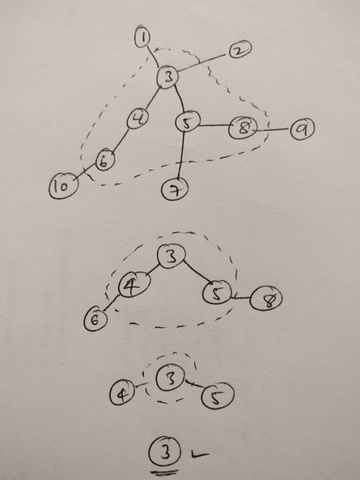 1
2
3
4
5
8
9
6
10
7
3
4
5
8
6
4
3
5
3 ✓